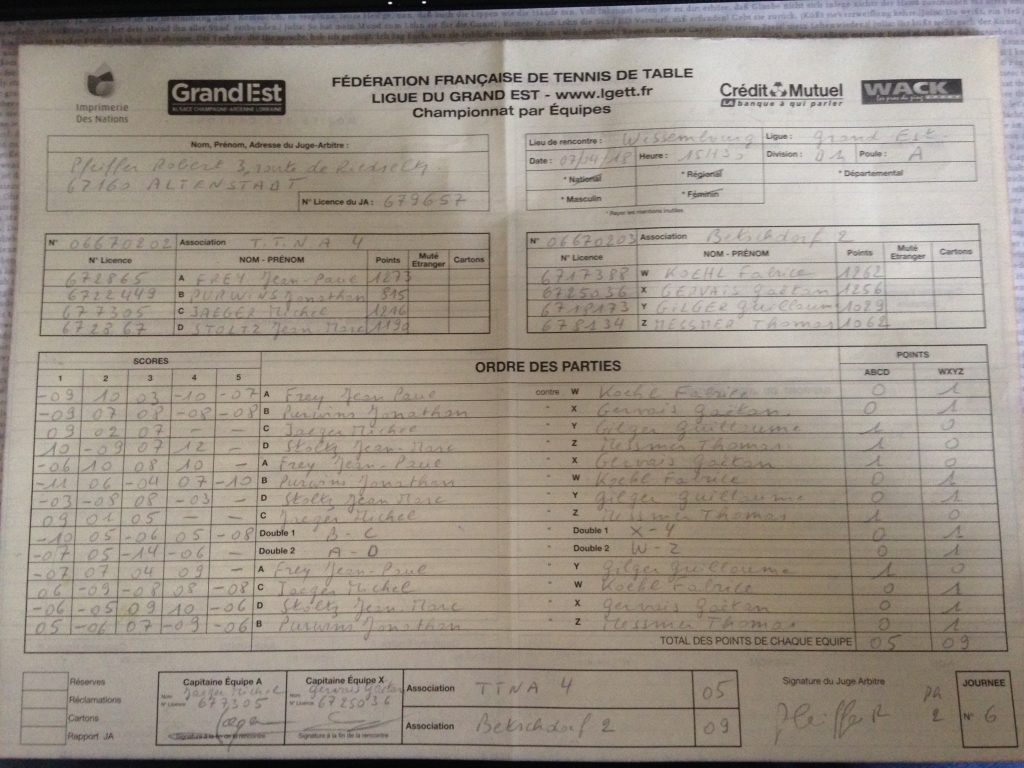 Imprimerie
Des Nations
GrandEst
ALSACE CHAMPAGNE-ARDENNE LORRAINE
FÉDÉRATION FRANÇAISE DE TENNIS DE TABLE
LIGUE DU GRAND EST - www.lgett.fr
Championnat par Équipes
Crédit Mutuel
LA banque à qui parler
WACK
Nom, Prénom, Adresse du Juge-Arbitre :
Pfeiffer Robert 3, route de
67160 ALTENSTADT
N° Licence du JA : 679657
Lieu de rencontre : Wissembourg Ligue : Grand Est
Date : 07/04/18 Heure : 15H30 Division : D1 Poule : A
* National * Régional * Départemental
* Masculin * Féminin
* Rayer les mentions inutiles
N° 06670202 Association T.T.N.A 4
N° Licence NOM - PRÉNOM Points Muté Etranger Cartons
672865 A FREY Jean-Paul 1273
6722449 B PURWINS Jonathan 815
677305 C JAEGER Michel 1216
672867 D STOLTZ Jean Marc 1190
N° 06670203 Association Betschdorf 2
N° Licence NOM - PRÉNOM Points Muté Etranger Cartons
6717388 W KOEHL Fabrice 1262
6725036 X GERVAIS Gaëtan 1256
6718173 Y GILGER Guillaume 1029
678134 Z MESSMER Thomas 1062
SCORES ORDRE DES PARTIES POINTS
1 2 3 4 5 ABCD WXYZ
-09 10 03 -10 -07 A Frey Jean-Paul contre W Koehl Fabrice 0 1
-09 07 08 -08 -08 B Purwins Jonathan " X Gervais Gaëtan 0 1
09 02 07 - - C Jaeger Michel " Y Gilger Guillaume 1 0
10 -09 07 12 - D Stoltz Jean-Marc " Z Messmer Thomas 1 0
-06 10 08 10 - A Frey Jean-Paul " X Gervais Gaëtan 1 0
-11 06 -04 07 -10 B Purwins Jonathan " W Koehl Fabrice 0 1
-03 -08 08 -03 - D Stoltz Jean Marc " Y Gilger Guillaume 0 1
09 01 05 - - C Jaeger Michel " Z Messmer Thomas 1 0
-10 05 -06 05 -08 Double 1 B - C " Double 1 X - Y 0 1
-07 05 -14 -06 - Double 2 A - D " Double 2 W - Z 0 1
-07 07 04 09 - A Frey Jean-Paul " Y Gilger Guillaume 1 0
06 -09 -08 08 -08 C Jaeger Michel " W Koehl Fabrice 0 1
-06 -05 09 10 -06 D Stoltz Jean-Marc " X Gervais Gaëtan 0 1
05 -06 07 -09 -06 B Purwins Jonathan " Z Messmer Thomas 0 1
TOTAL DES POINTS DE CHAQUE EQUIPE 05 09
Réserves
Réclamations
Cartons
Rapport JA
Capitaine Équipe A
Nom Jaeger Michel
N° Licence 677305
Signature à la fin de la rencontre
Capitaine Équipe X
Nom Gervais Gaëtan
N° Licence 6725036
Signature à la fin de la rencontre
Association TTNA 4 05
Association Betschdorf 2 09
Signature du Juge Arbitre
Pfeiffer R
JOURNEE
N° 6